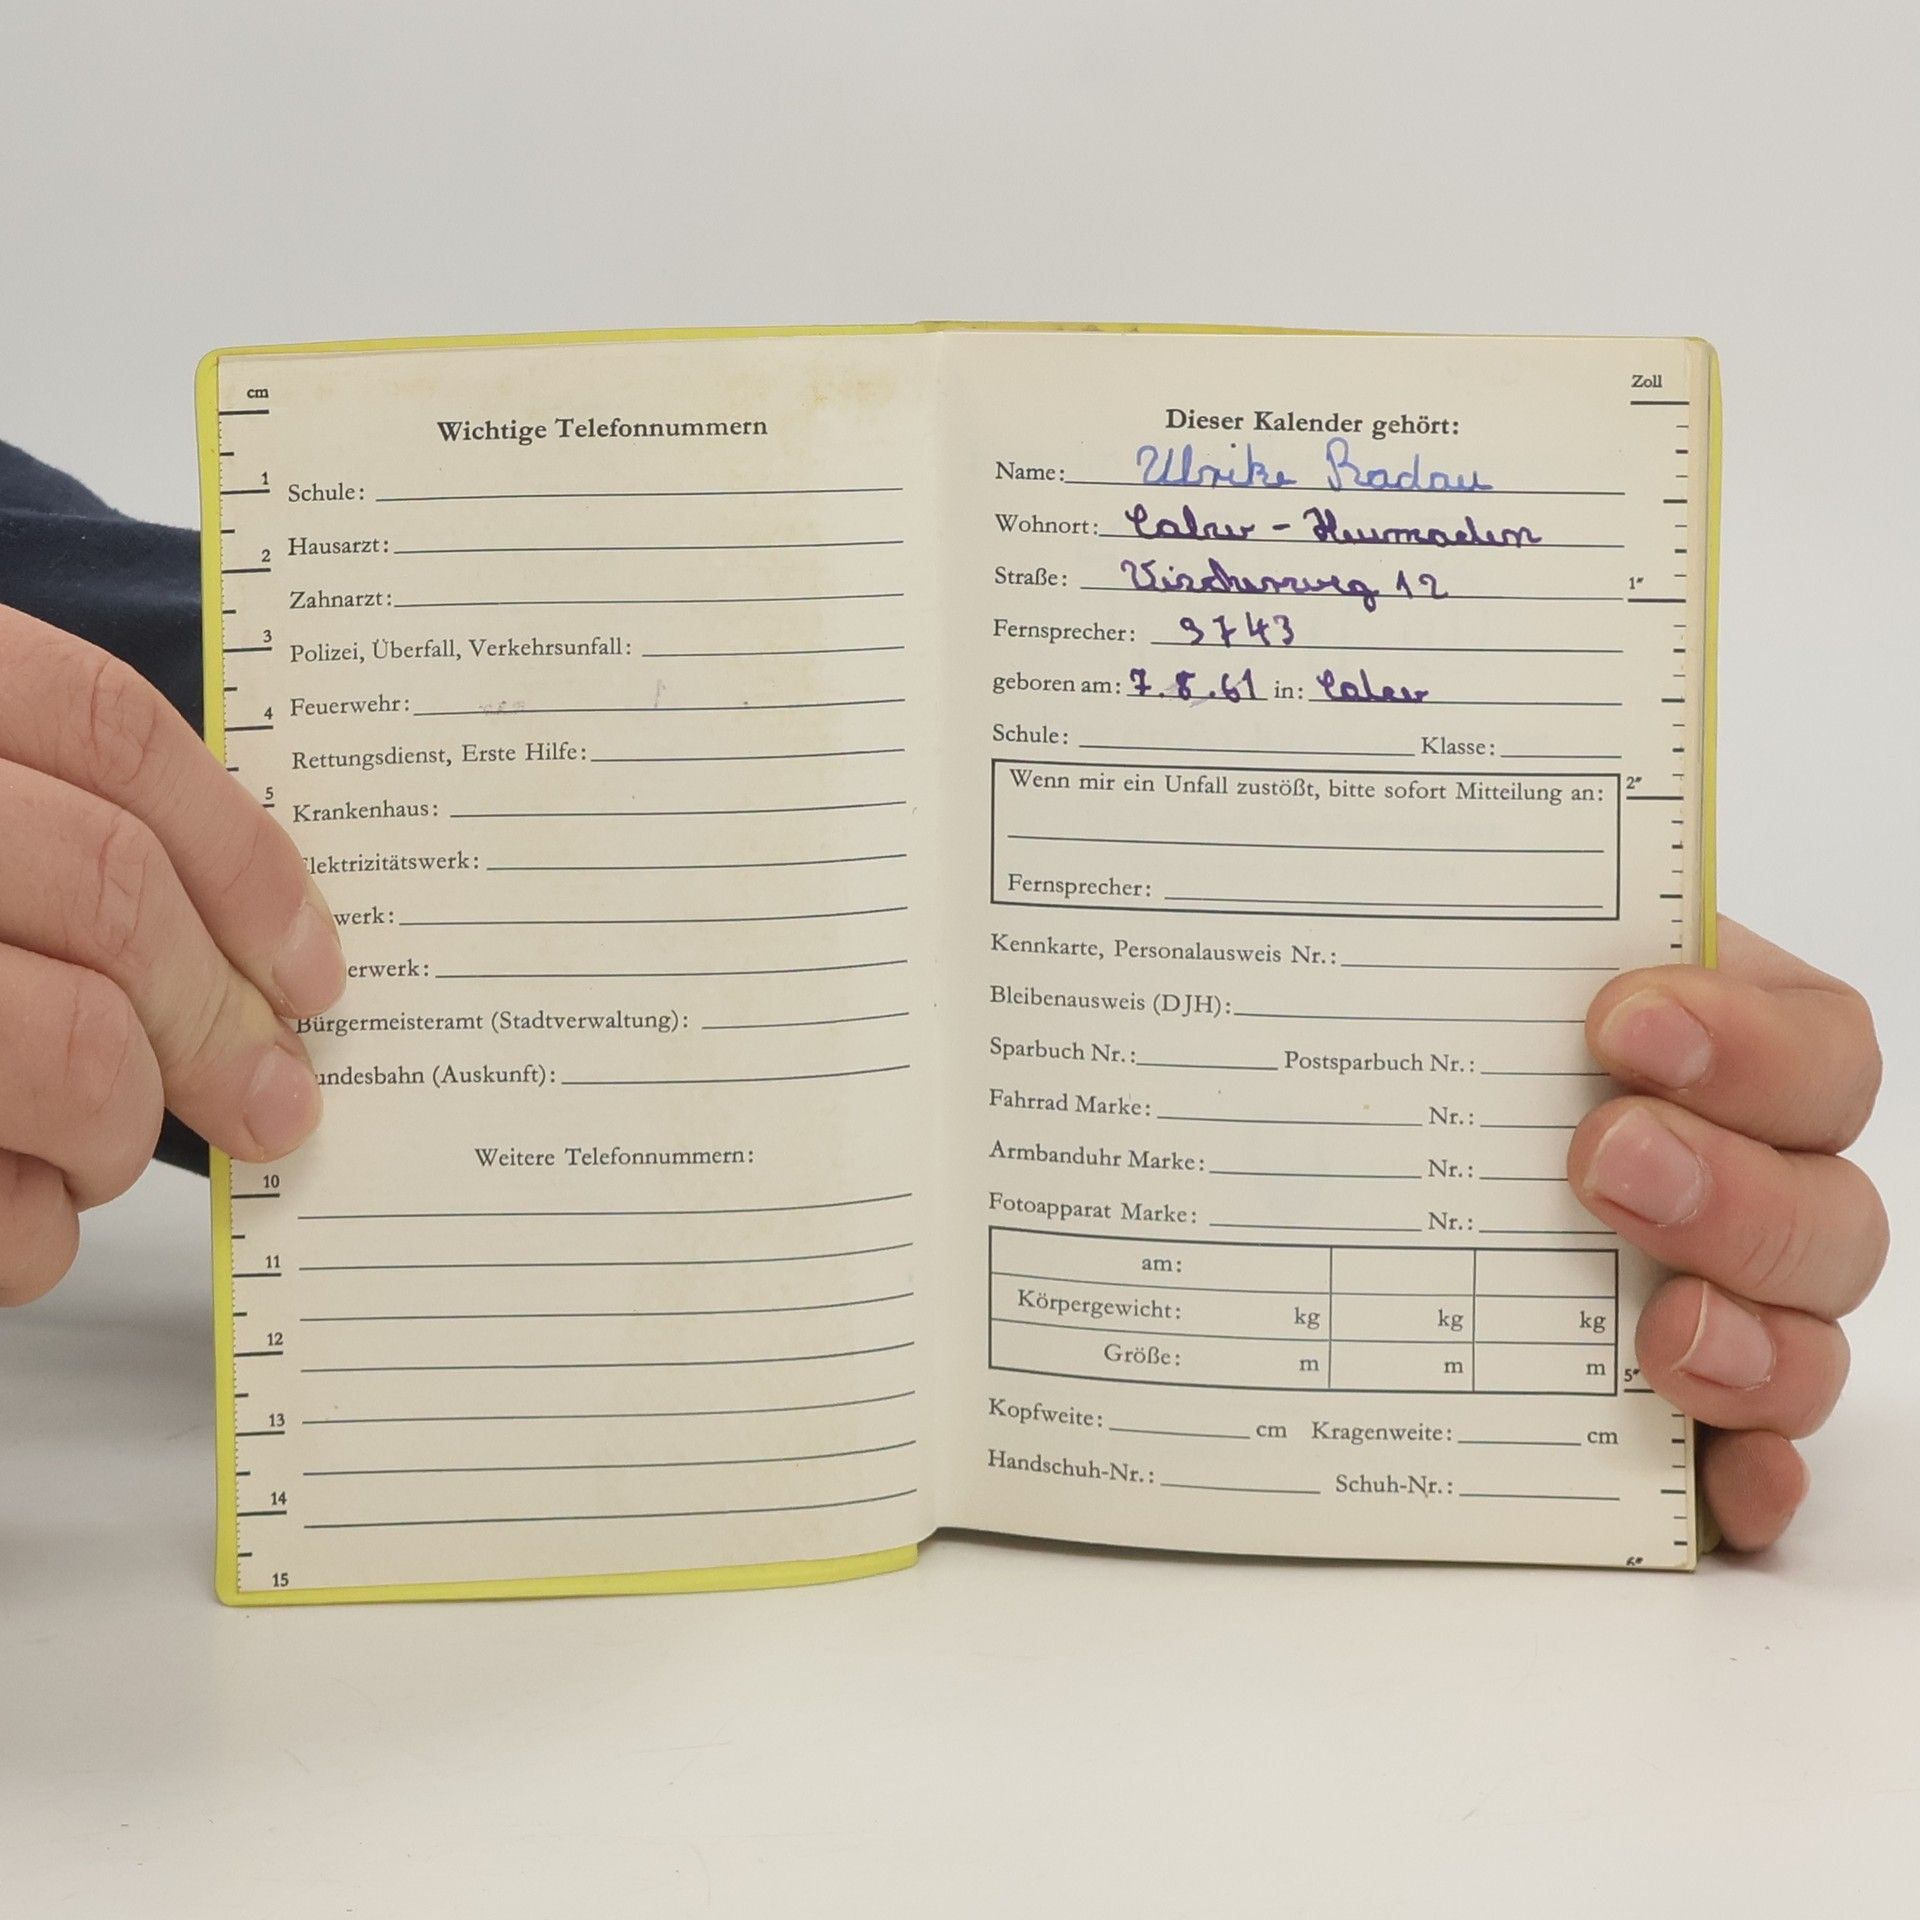 cm
Wichtige Telefonnummern
1
Schule:
2
Hausarzt:
Zahnarzt:
3
Polizei, Überfall, Verkehrsunfall:
4
Feuerwehr:
Rettungsdienst, Erste Hilfe:
5
Krankenhaus:
lektrizitätswerk:
werk:
erwerk:
Bürgermeisteramt (Stadtverwaltung):
undesbahn (Auskunft):
Weitere Telefonnummern:
10
11
12
13
14
15
Zoll
Dieser Kalender gehört:
Name: Ulrike Radau
Wohnort: Calw - Heumaden
Straße: Vischerweg 12
1"
Fernsprecher: 9743
geboren am: 7. .61 in: Calw
Schule: Klasse:
Wenn mir ein Unfall zustößt, bitte sofort Mitteilung an:
2"
Fernsprecher:
Kennkarte, Personalausweis Nr.:
Bleibenausweis (DJH):
Sparbuch Nr.: Postsparbuch Nr.:
Fahrrad Marke: Nr.:
Armbanduhr Marke: Nr.:
Fotoapparat Marke: Nr.:
am:
Körpergewicht: kg kg kg
Größe: m m m
5"
Kopfweite: cm Kragenweite: cm
Handschuh-Nr.: Schuh-Nr.:
6"